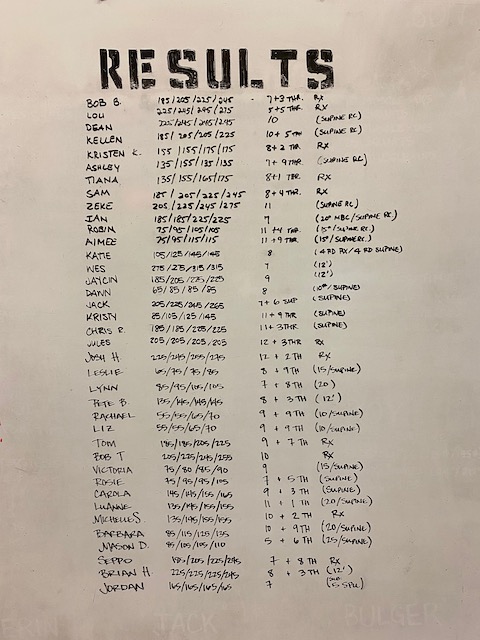 RESULTS
BOB B. 185/205/225/245 - 7+3 THR. RX
LOU 225/245/245/275 5+5 THR. RX
DEAN 225/245/245/245 10 (SUPINE RC)
KELLEN 185/205/205/225 10+5 TH (SUPINE RC)
KRISTEN K. 155/155/175/175 8+2 THR RX
ASHLEY 135/155/135/135 7+9 THR (SUPINE RC)
TIANA 135/155/165/175 8+1 THR. RX
SAM 185/205/225/245 8+4 THR. RX
ZEKE 205/225/245/275 11 (SUPINE RC)
IAN 185/185/225/225 7 (20# MBC/SUPINE RC)
ROBIN 75/95/105/105 11+4 THR. (15#/SUPINE RC)
AIMEE 75/95/115/115 11+9 THR (15#/SUPINE RC)
KATIE 105/125/145/145 8 (4 RD RX/4 RD SUPINE)
WES 275/275/315/315 7 (12')
JAYCIN 185/205/225/225 9 (12')
DANN 65/85/85/85 8 (10#/SUPINE)
JACK 205/225/245/265 7+6 SUP (SUPINE)
KRISTY 85/105/125/145 11+9 THR (SUPINE)
CHRIS R. 185/185/225/225 11+3 THR (SUPINE)
JULES 205/205/205/205 12+3 THR RX
JOSH H. 225/245/255/275 12+2 TH RX
LESLIE 65/75/75/85 8+9TH (15/SUPINE)
LYNN 85/95/105/105 7+8TH (20)
PETE B. 135/145/145/145 8+3TH (12')
RACHAEL 55/55/65/70 9+9TH (10/SUPINE)
LIZ 55/55/65/70 9+9TH (10/SUPINE)
TOM 185/185/205/225 9+7TH RX
BOB T 205/225/245/255 10 RX
VICTORIA 75/80/85/90 9 (15/SUPINE)
ROSIE 75/95/95/105 7+5TH (SUPINE)
CAROLA 145/145/155/165 9+3TH (SUPINE)
LUANNE 135/145/155/155 11+1TH (20/SUPINE)
MICHELLE S. 135/145/155/155 10+2TH RX
BARBARA 85/115/125/135 10+9TH (20/SUPINE)
MASON D. 95/105/105/110 5+6TH (25/SUPINE)
SEPPO 185/205/225/245 7+8TH RX
BRIAN H. 225/225/225/245 8+3TH (12')
JORDAN 165/165/165/165 7
JACK
BULGER